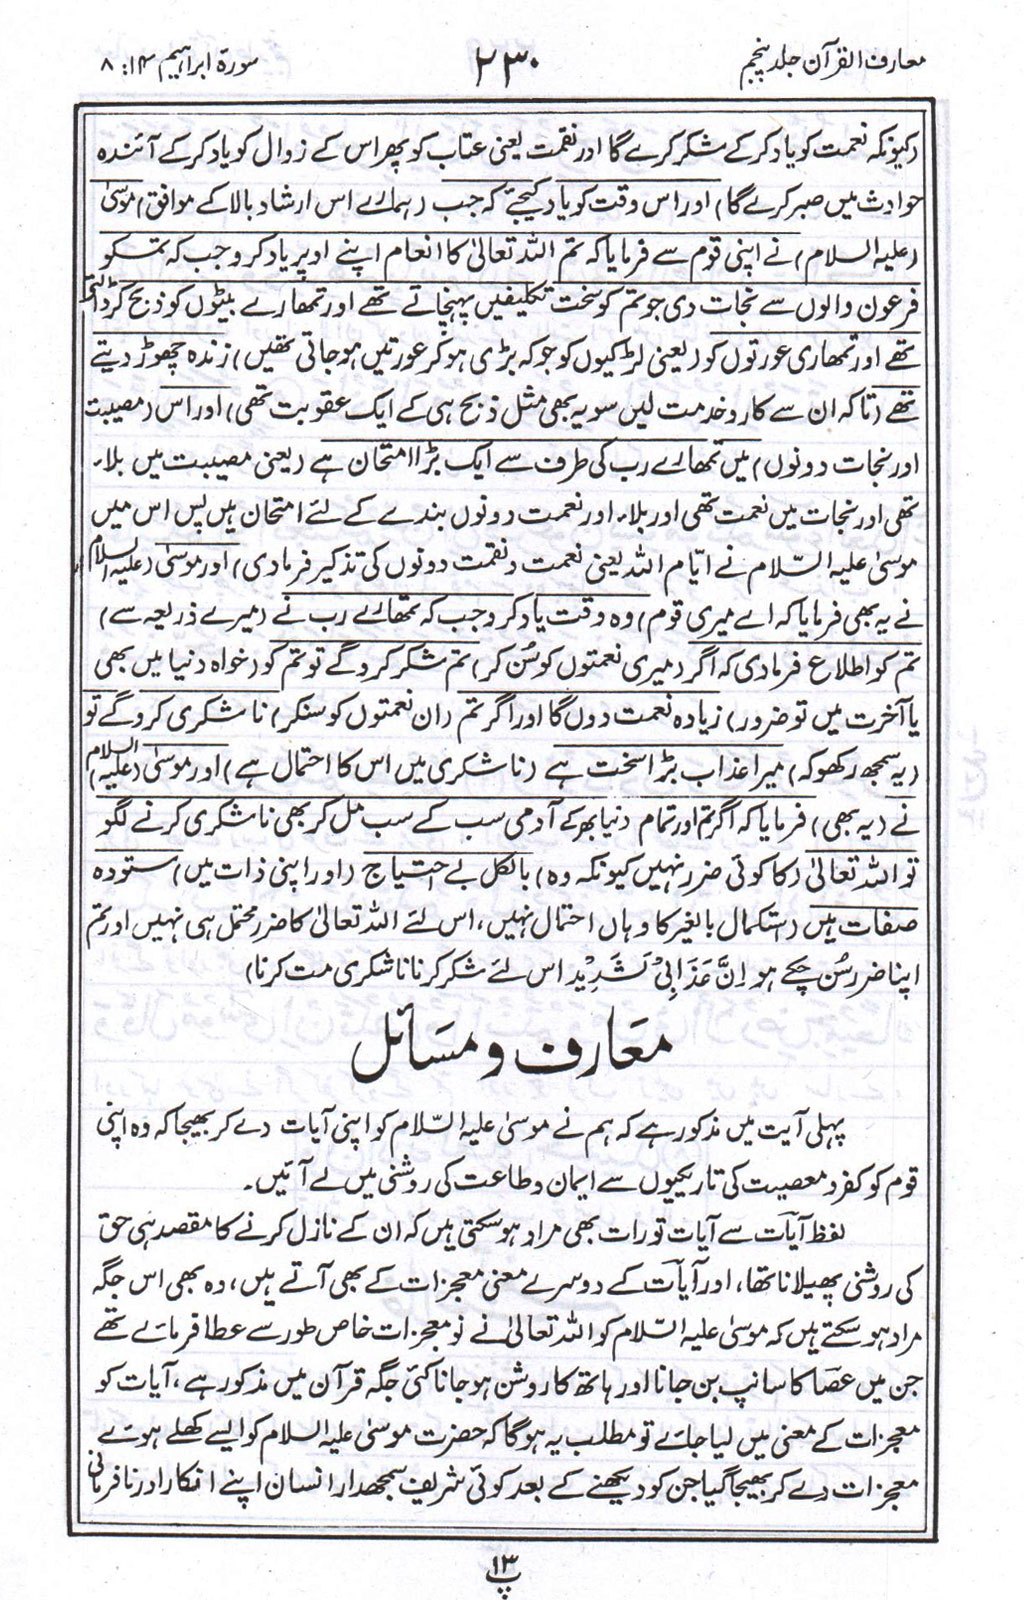 معارف القرآن جلد پنجم
۲۳۰
سورۃ ابراہیم ۱۴: ۸
(کیونکہ نعمت کو یاد کر کے شکر کرے گا اور نقمت یعنی عتاب کو پھر اس کے زوال کو یاد کر کے آئندہ
حوادث میں صبر کرے گا) اور اس وقت کو یاد کیجئے کہ جب (ہمارے اس ارشاد بالا کے موافق) موسیٰ
(علیہ السلام) نے اپنی قوم سے فرمایا کہ تم اللہ تعالیٰ کا انعام اپنے اوپر یاد کرو جب کہ تم کو
فرعون والوں سے نجات دی جو تم کو سخت تکلیفیں پہنچاتے تھے اور تمھارے بیٹوں کو ذبح کر ڈالتے
تھے اور تمھاری عورتوں کو (یعنی لڑکیوں کو جو کہ بڑی ہو کر عورتیں ہو جاتی تھیں) زندہ چھوڑ دیتے
تھے (تاکہ ان سے کار و خدمت لیں سو یہ بھی مثل ذبح ہی کے ایک عقوبت تھی) اور اس (مصیبت
اور نجات دونوں) میں تمھارے رب کی طرف سے ایک بڑا امتحان ہے (یعنی مصیبت میں بلاء
تھی اور نجات میں نعمت تھی اور بلاء اور نعمت دونوں بندے کے لئے امتحان ہیں پس اس میں
موسیٰ علیہ السّلام نے ایّام اللہ یعنی نعمت و نقمت دونوں کی تذکیر فرمادی) اور موسیٰ (علیہ السلام)
نے یہ بھی فرمایا کہ اے میری قوم) وہ وقت یاد کرو جب کہ تمھارے رب نے (میرے ذریعہ سے)
تم کو اطلاع فرمادی کہ اگر (میری نعمتوں کو سُن کر) تم شکر کرو گے تو تم کو (خواہ دنیا میں بھی
یا آخرت میں تو ضرور) زیادہ نعمت دوں گا اور اگر تم (ان نعمتوں کو سنکر) ناشکری کرو گے تو
(یہ سمجھ رکھو کہ) میرا عذاب بڑا سخت ہے (ناشکری میں اس کا احتمال ہے) اور موسیٰ (علیہ السلام)
نے (یہ بھی) فرمایا کہ اگر تم اور تمام دنیا بھر کے آدمی سب کے سب مل کر بھی ناشکری کرنے لگو
تو اللہ تعالیٰ (کا کوئی ضرر نہیں کیونکہ وہ) بالکل بے احتیاج (اور اپنی ذات میں) ستودہ
صفات ہیں (استکمال بالغیر کا وہاں احتمال نہیں، اس لئے اللہ تعالیٰ کا ضرر محتمل ہی نہیں اور تم
اپنا ضرر سُن چکے ہو اِنَّ عَذَابِیْ لَشَدِیْد اس لئے شکر کرنا ناشکری مت کرنا)
معَارف و مسَائل
پہلی آیت میں مذکور ہے کہ ہم نے موسیٰ علیہ السّلام کو اپنی آیات دے کر بھیجا کہ وہ اپنی
قوم کو کفر و معصیت کی تاریکیوں سے ایمان و طاعت کی روشنی میں لے آئیں۔
لفظ آیات سے آیات تورات بھی مراد ہو سکتی ہیں کہ ان کے نازل کرنے کا مقصد ہی حق
کی روشنی پھیلانا تھا، اور آیات کے دوسرے معنی معجزات کے بھی آتے ہیں، وہ بھی اس جگہ
مراد ہو سکتے ہیں کہ موسیٰ علیہ السّلام کو اللہ تعالیٰ نے نو معجزات خاص طور سے عطا فرمائے تھے
جن میں عصَا کا سانپ بن جانا اور ہاتھ کا روشن ہو جانا کئی جگہ قرآن میں مذکور ہے، آیات کو
معجزات کے معنی میں لیا جائے تو مطلب یہ ہوگا کہ حضرت موسیٰ علیہ السلام کو ایسے کھلے ہوئے
معجزات دے کر بھیجا گیا جن کو دیکھنے کے بعد کوئی شریف سمجھدار انسان اپنے انکار اور نافرمانی
پ ۱۳